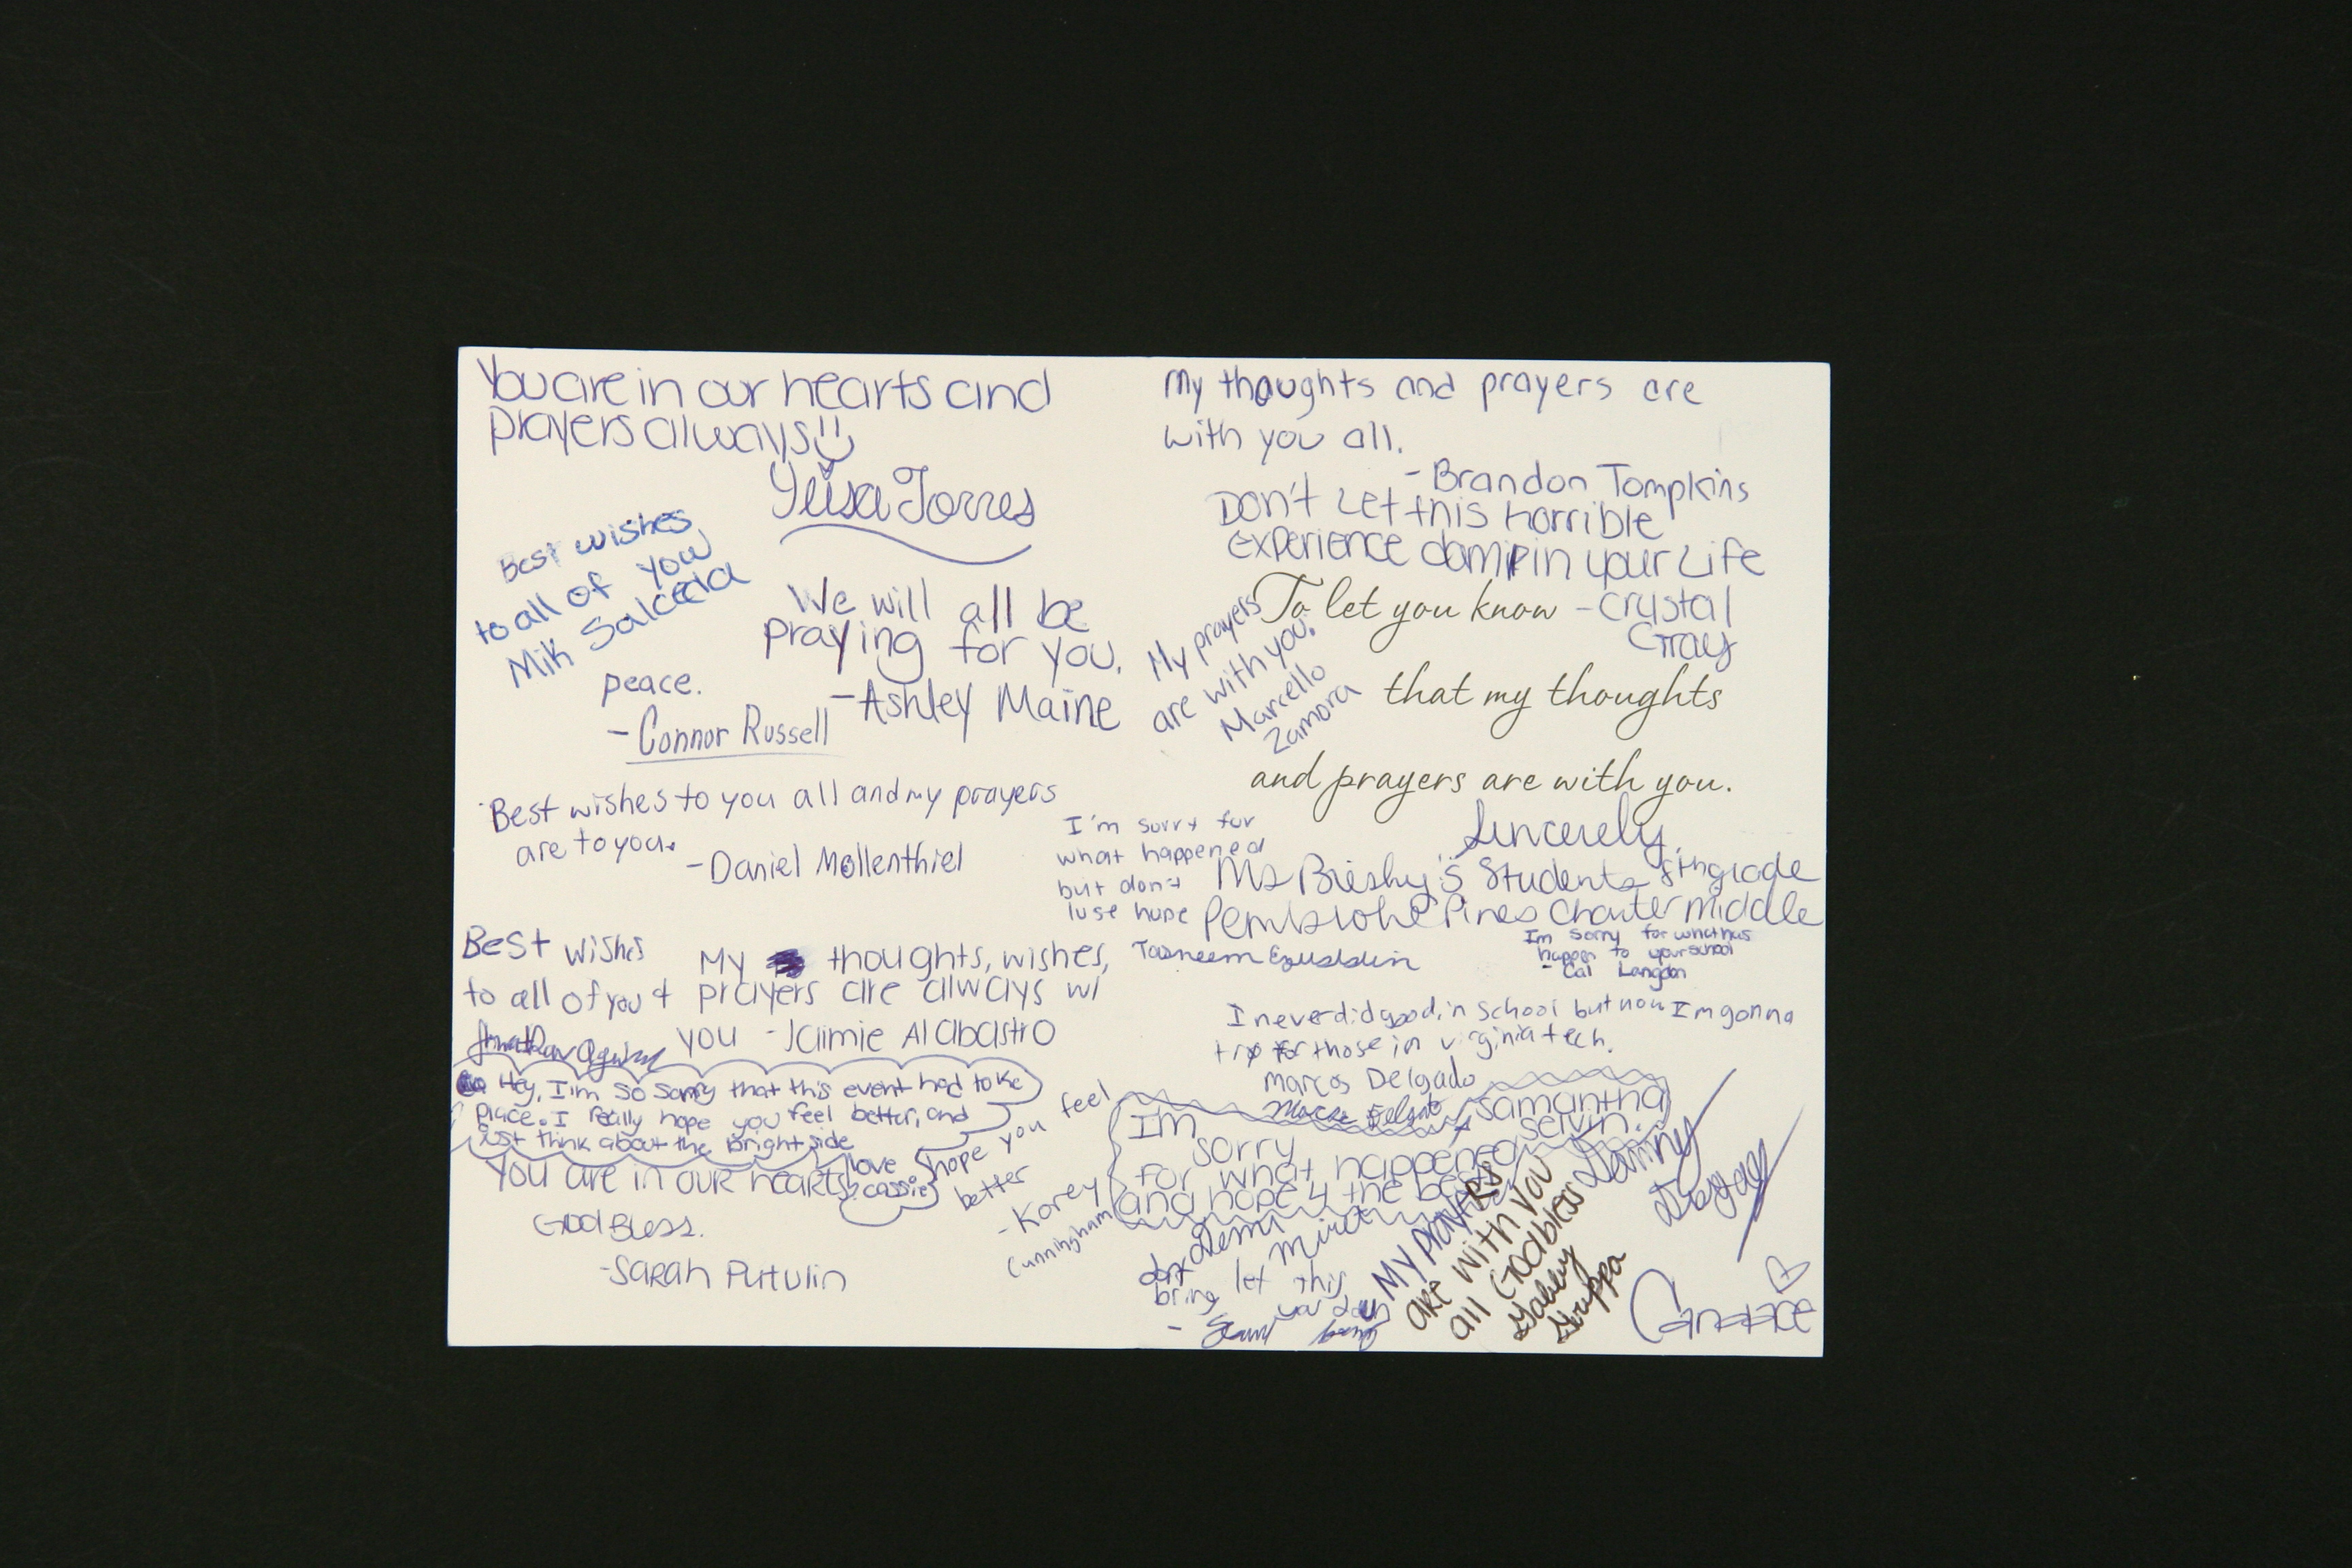 You are in our hearts and
prayers always
Yeisa Torres
Best wishes
to all of you
Mik Salceda
We will all be
praying for you.
-Ashley Maine
peace.
- Connor Russell
Best wishes to you all and my prayers
are to you.
-Daniel Mollenthiel
Best wishes
to all of you
My thoughts, wishes,
& prayers are always w/
you -Jaimie Alabastro
Hey, I'm so sorry that this event had to take
place. I really hope you feel better, and
just think about the bright side
love
cassie
You are in our hearts.
God Bless.
-Sarah Putulin
hope you feel
better
-Korey
Cunningham
My thoughts and prayers are
with you all.
-Brandon Tompkins
Don't Let this horrible
experience dampin your Life
-Crystal
Gray
My prayers
are with you.
Marcello
Zamora
To let you know
that my thoughts
and prayers are with you.
Sincerely,
Ms Bresky's Students 8th grade
Pembroke Pines Charter Middle
I'm sorry for
what happened
but don't
lose hope
Tasneem Ezuddin
Im sorry for what has
happen to your school
- Cal Langdon
I never did good in school but now I'm gonna
try for those in virginia tech.
Marcos Delgado
Im
sorry
for what happened
and hope 4 the best
Samantha
Selvin.
Demi
Miret
dont let this
bring you down
My prayers
are with you
all God bless
Gabby
Gruppa
Danny
Candace